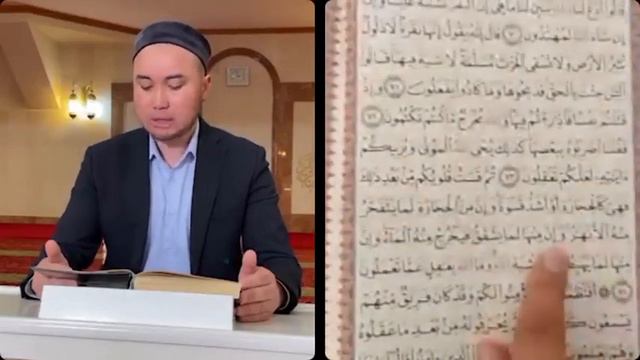 لَنَا مَا هِىَ إِنَّ ٱلْبَقَرَ
إِن شَآءَ لَمُهْتَدُونَ ٧٠ قَالَ إِنَّهُۥ يَقُولُ إِنَّهَا بَقَرَةٌ لَّا ذَلُولٌ
تُثِيرُ ٱلْأَرْضَ وَلَا تَسْقِى ٱلْحَرْثَ مُسَلَّمَةٌ لَّا شِيَةَ فِيهَا قَالُوا۟
ٱلْـَٰٔنَ جِئْتَ بِٱلْحَقِّ فَذَبَحُوهَا وَمَا كَادُوا۟ يَفْعَلُونَ ٧١ وَإِذْ
قَتَلْتُمْ نَفْسًا فَٱدَّٰرَْٰٔتُمْ فِيهَا مُخْرِجٌ مَّا كُنتُمْ تَكْتُمُونَ ٧٢
فَقُلْنَا ٱضْرِبُوهُ بِبَعْضِهَا كَذَٰلِكَ يُحْىِ ٱلْمَوْتَىٰ وَيُرِيكُمْ
ءَايَٰتِهِۦ لَعَلَّكُمْ تَعْقِلُونَ ٧٣ ثُمَّ قَسَتْ قُلُوبُكُم مِّنۢ بَعْدِ ذَٰلِكَ
فَهِىَ كَٱلْحِجَارَةِ أَوْ أَشَدُّ قَسْوَةً وَإِنَّ مِنَ ٱلْحِجَارَةِ لَمَا يَتَفَجَّرُ
مِنْهُ ٱلْأَنْهَٰرُ وَإِنَّ مِنْهَا لَمَا يَشَّقَّقُ فَيَخْرُجُ مِنْهُ ٱلْمَآءُ وَإِنَّ
مِنْهَا لَمَا وَمَا بِغَٰفِلٍ عَمَّا تَعْمَلُونَ
٧٤ لَكُمْ وَقَدْ كَانَ فَرِيقٌ مِّنْهُمْ
يَسْمَعُونَ يُحَرِّفُونَهُۥ مِنۢ بَعْدِ مَا عَقَلُوهُ